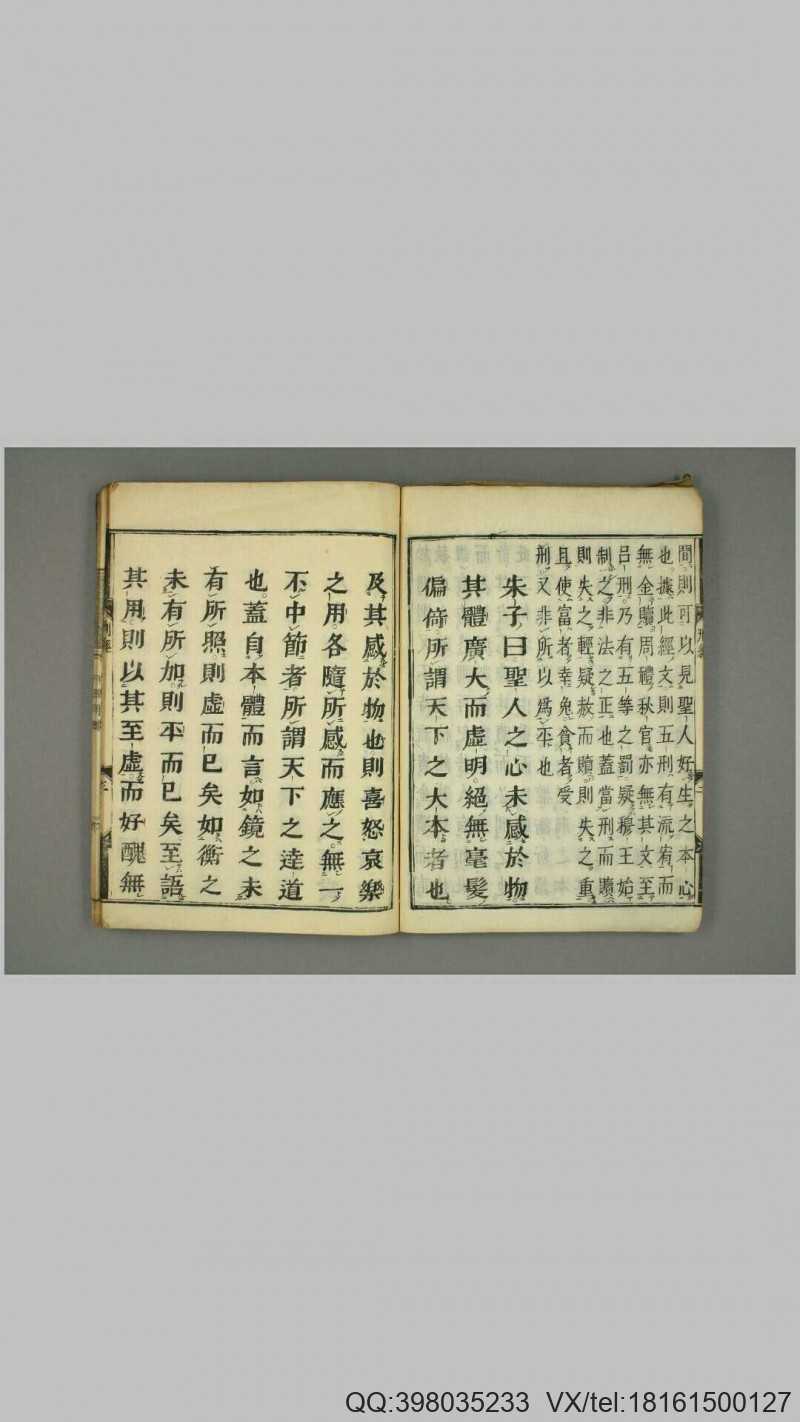 間則可以見聖人好生之本心
也據此經文則五刑有流宥而
無金贖周禮秋官亦無其文至
呂刑乃有五等之罰疑穆王始
制之非法之正也蓋當刑而贖
則失之輕疑赦而贖則失之重
且使富者幸免貧者受
刑又非所以爲平也
朱子曰聖人之心未感於物
其體廣大而虛明絕無毫髮
偏倚所謂天下之大本者也
及其感於物也則喜怒哀樂
之用各隨所感而應之無一
不中節者所謂天下之達道
也蓋自本體而言如鏡之未
有所照則虛而已矣如衡之
未有所加則平而已矣至語
其用則以其至虛而好醜無
QQ:398035233 VX/tel:18161500127